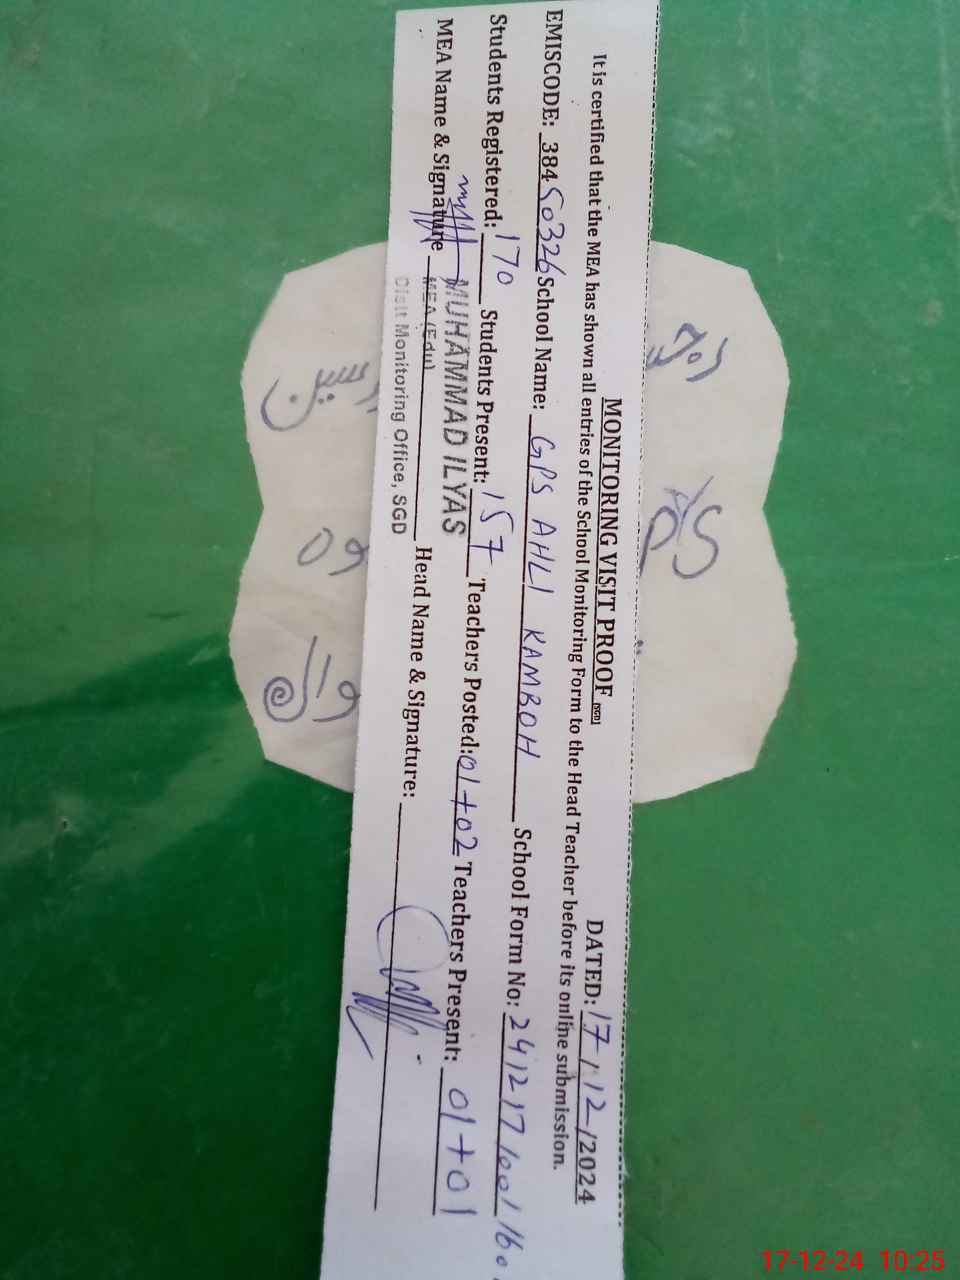 MONITORING VISIT PROOF (SGD) DATED: 17/12/2024
It is certified that the MEA has shown all entries of the School Monitoring Form to the Head Teacher before its online submission.
EMISCODE: 38450326 School Name: GPS AHLI KAMBOH School Form No: 2412171001160
Students Registered: 170 Students Present: 157 Teachers Posted: 01+02 Teachers Present: 01+01
MEA Name & Signature MUHAMMAD ILYAS Head Name & Signature:
MEA (Edu)
Distt Monitoring Office, SGD
17-12-24 10:25